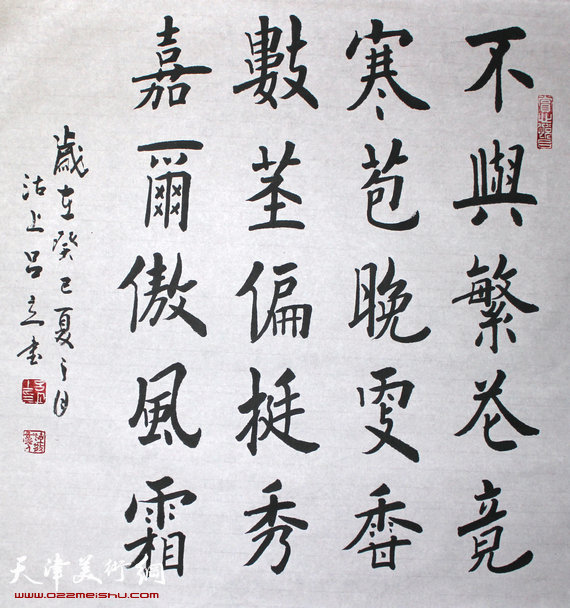 不與繁花竟
寒苞晚香
數莖偏挺秀
嘉爾傲風霜
歲在癸巳夏之月
沽上吕立书
天津美術網
www.022meishu.com